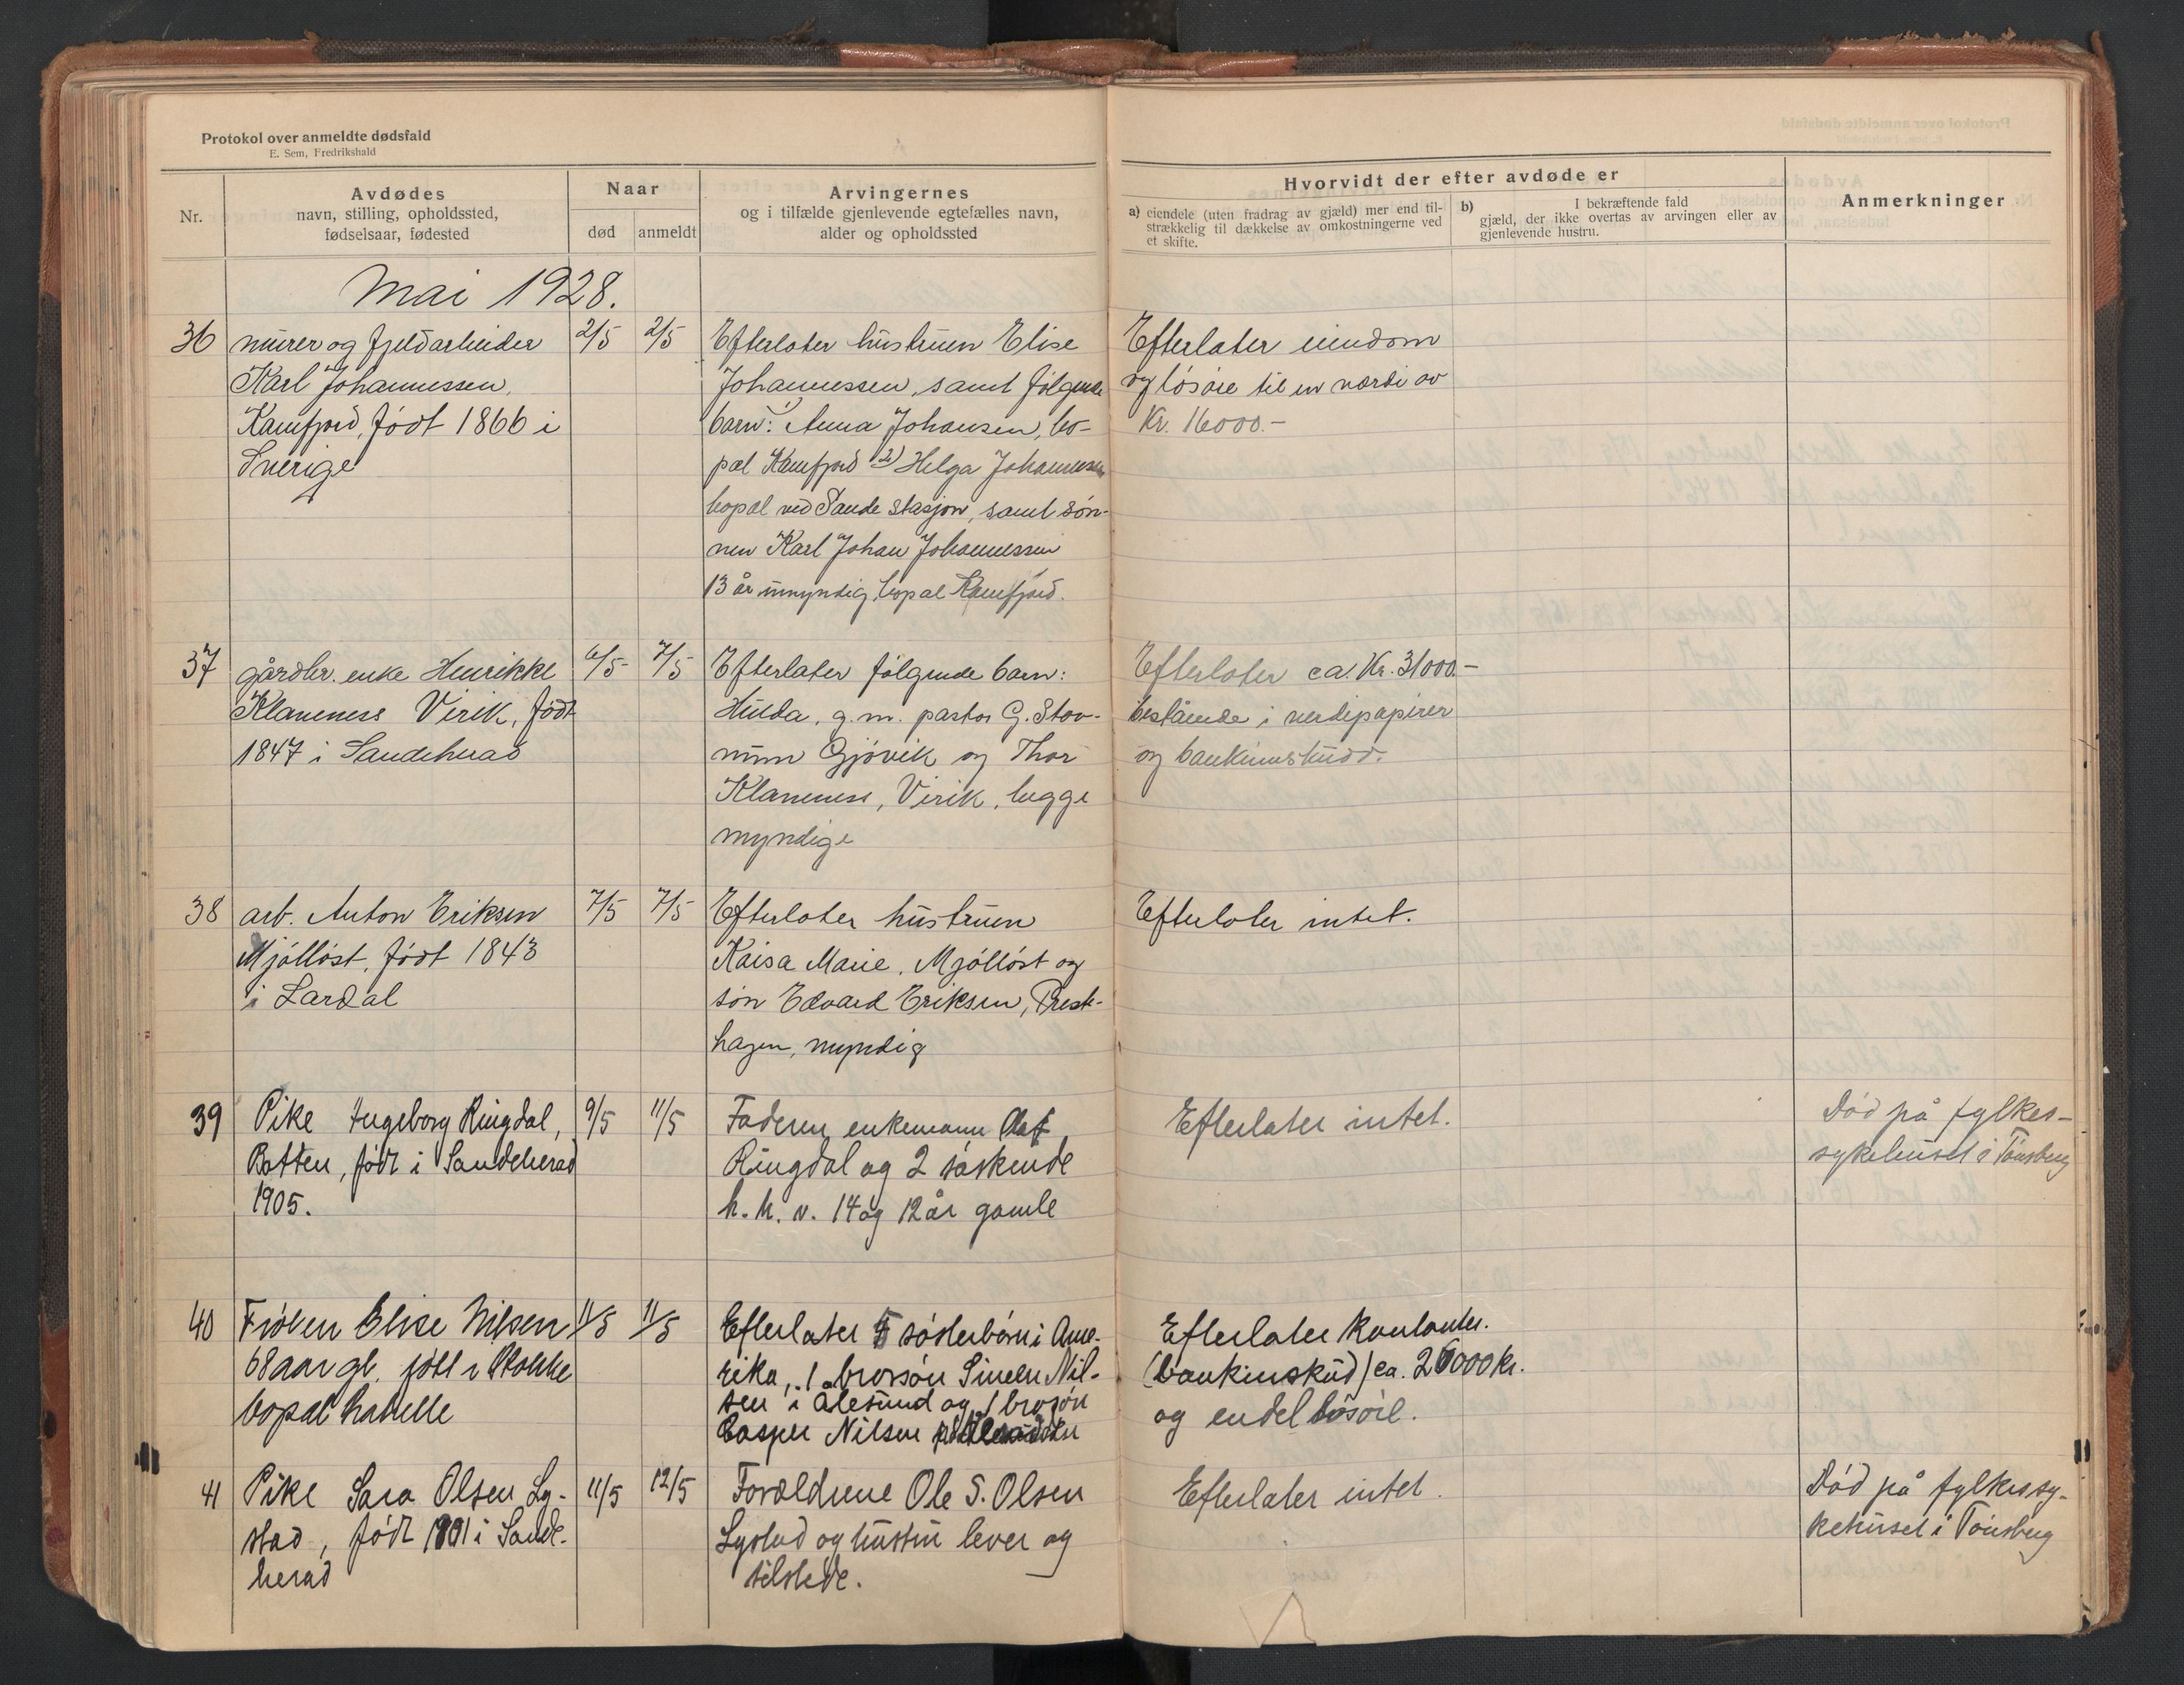 Protokol over anmeldte dødsfald
E. Sem, Fredrikshald
Nr.
Avdødes
navn, stilling, opholdssted,
fødselsaar, fødested
Naar
død
anmeldt
Arvingernes
og i tilfælde gjenlevende egtefælles navn,
alder og opholdssted
Hvorvidt der efter avdøde er
a) eiendele (uten fradrag av gjæld) mer end til-
strækkelig til dækkelse av omkostningerne ved
et skifte.
b) I bekræftende fald
gjæld, der ikke overtas av arvingen eller av
gjenlevende hustru.
Anmerkninger
Mai 1928.
36
murer og fjeldarbeider
Karl Johannessen,
Kamfjord, født 1866 i
Sverige
2/5
2/5
Efterlater hustruen Elise
Johannessen, samt følgende
barn: 1) Anna Johansen, bo-
pæl Kamfjord 2) Helga Johannessen
bopæl ved Sande stasjon, samt søn-
nen Karl Johan Johannessen
13 år umyndig, bopæl Kamfjord.
Efterlater eiendom
og løsøre til en værdi av
Kr. 16000.-
37
gårdbr. enke Henrikke
Klaveness Virik, født
1847 i Sandeherad
6/5
7/5
Efterlater følgende barn:
Hulda, g. m. pastor G. Stav-
num Gjøvik og Thor
Klaveness, Virik, begge
myndige
Efterlater ca. Kr. 31000.-
bestående i verdipapirer
og bankinnskudd.
38
arb. Anton Eriksen
Mjølløst, født 1843
i Lardal
7/5
7/5
Efterlater hustruen
Kaisa Marie, Mjølløst og
søn Edvard Eriksen, Prest-
hagen, myndig
Efterlater intet.
39
Pike Ingeborg Ringdal,
Rotten, født i Sandeherad
1905.
9/5
11/5
Faderen, enkemann Olaf
Ringdal og 2 søskende
h. h. v. 14 og 12 år gamle
Efterlater intet.
Død på fylkes-
sykehuset i Tønsberg
40
Frøken Elise Nilsen
68 aar gl. født i Stokke
bopæl
11/5
11/5
Efterlater 5 søsterbørn i Ame-
rika, 1 brorsøn Simen Nil-
sen i Ålesund og 1 brorsøn
Casper Nilsen
Efterlater kontanter.
(bankinskud) ca. 26000 kr.
og endel løsøre.
41
Pike Sara Olsen Ly-
stad, født 1901 i Sande-
herad
11/5
12/5
Forældrene Ole S. Olsen
Lystad og hustru lever og
tilstede.
Efterlater intet.
Død på fylkessy-
kehuset i Tønsberg